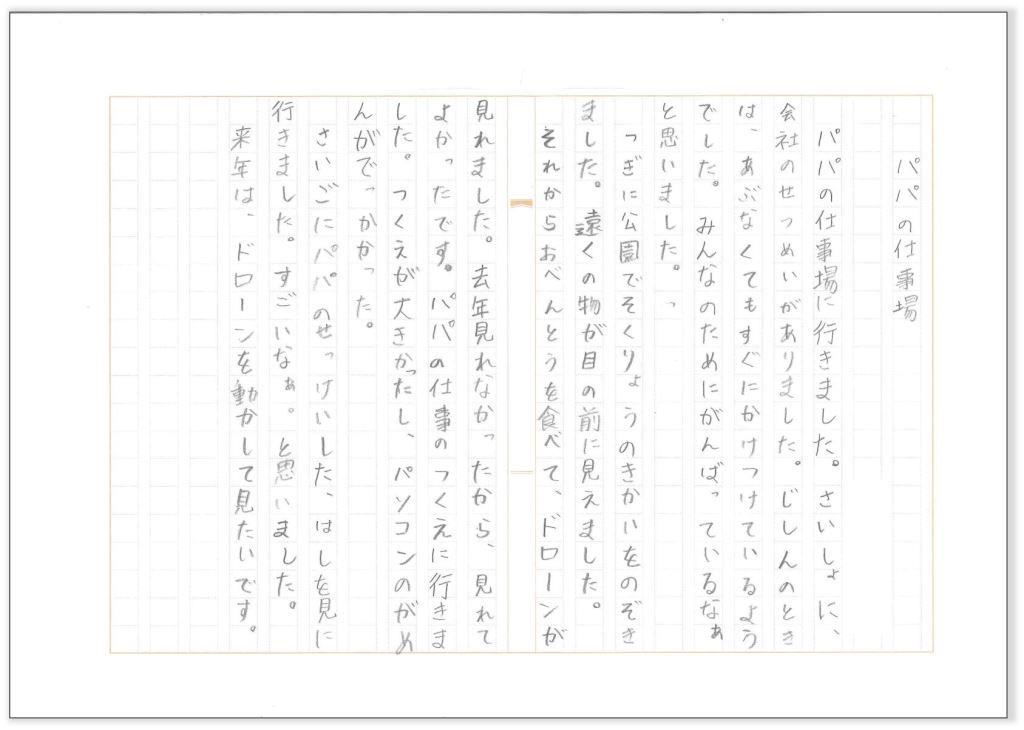 パパの仕事場
パパの仕事場に行きました。さいしょに、
会社のせつめいがありました。じしんのとき
は、あぶなくてもすぐにかけつけているよう
でした。みんなのためにがんばっているなぁ
と思いました。っ
つぎに公園でそくりょうのきかいをのぞき
ました。遠くの物が目の前に見えました。
それからおべんとうを食べて、ドローンが
見れました。去年見れなかったから、見れて
よかったです。パパの仕事のつくえに行きま
した。つくえが大きかったし、パソコンのがめ
んがでっかかった。
さいごにパパのせっけいした、はしを見に
行きました。すごいなぁ。と思いました。
来年は、ドローンを動かして見たいです。